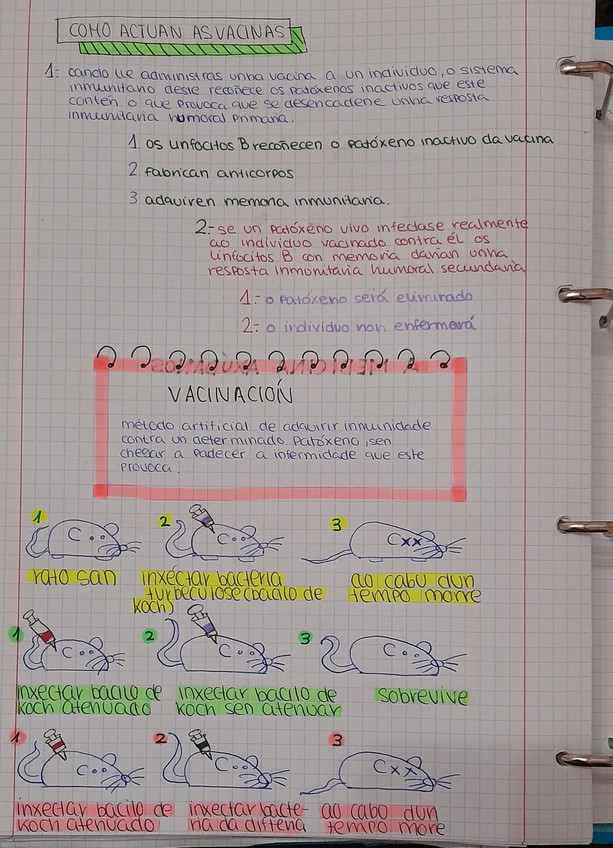 COMO ACTUAN AS VACINAS
1- cando lle administras unha vacina a un individuo, o sistema
inmunitario deste recoñece os patóxenos inactivos que este
contén o que provoca que se desencadene unha resposta
inmunitaria humoral primaria.
1 os linfocitos B recoñecen o patóxeno inactivo da vacina
2 fabrican anticorpos
3 adquiren memoria inmunitaria.
2- se un patóxeno vivo infectase realmente
ao individuo vacinado contra él os
linfocitos B con memoria darían unha
resposta inmunitaria humoral secundaria
1- o patóxeno será eliminado
2- o individuo non enfermará
VACINACIÓN
método artificial de adquirir inmunidade
contra un determinado patóxeno, sen
chegar a padecer a infermidade que este
provoca.
1 2 3
rato san
inxectar bacteria
turbeculose (bacilo de
koch)
ao cabo dun
tempo morre
1 2 3
inxectar bacilo de
koch atenuado
inxectar bacilo de
koch sen atenuar
sobrevive
1 2 3
inxectar bacilo de
koch atenuado
inxectar bacte-
ria da difteria
ao cabo dun
tempo more